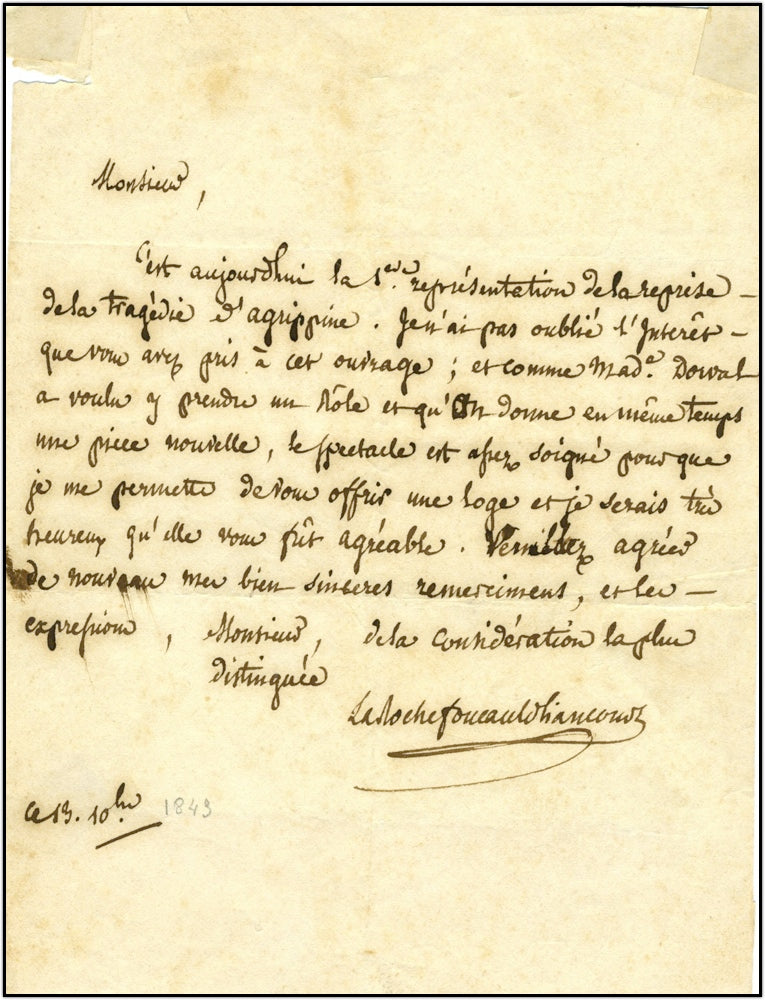 Monsieur,
C'est aujourdhui la 1ere. représentation de la reprise –
de la tragédie d'agrippine. Je n'ai pas oublié l'Interêt –
que vous avez pris à cet ouvrage ; et comme Made. Dorval
a voulu y prendre un Rôle et qu'On donne en même temps
une piece nouvelle, le spectacle est assez soigné pour que
je me permette de vous offrir une loge et je serais très
heureux qu'elle vous fût agréable. Veuillez agréer
de nouveau mes bien sinceres remerciments, et les –
expressions, Monsieur, de la considération la plus
distinguée
LaRochefoucauld Liancourt
Ce 13. 10bre. 1843